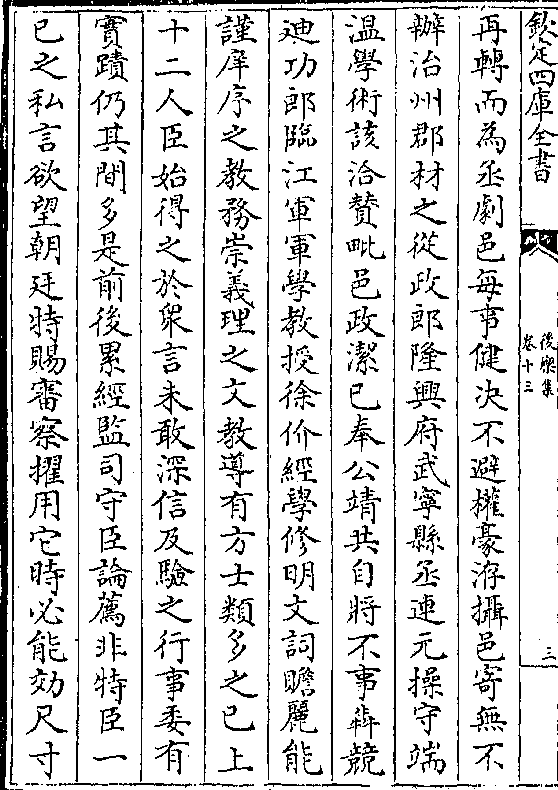 欽定四庫全書
後樂集
卷十三
三
再轉而為丞劇邑每事健決不避權豪洊攝邑寄無不
辦治州郡材之從政郎隆興府武寧縣丞連元操守端
温學術該洽贊毗邑政潔已奉公靖共自將不事奔競
廸功郎臨江軍軍學教授徐价經學修明文詞贍麗能
謹庠序之教務崇義理之文教導有方士類多之已上
十二人臣始得之於衆言未敢深信及驗之行事委有
實蹟仍其間多是前後累經監司守臣論薦非特臣一
已之私言欲望朝廷特賜審察擢用它時必能効尺寸